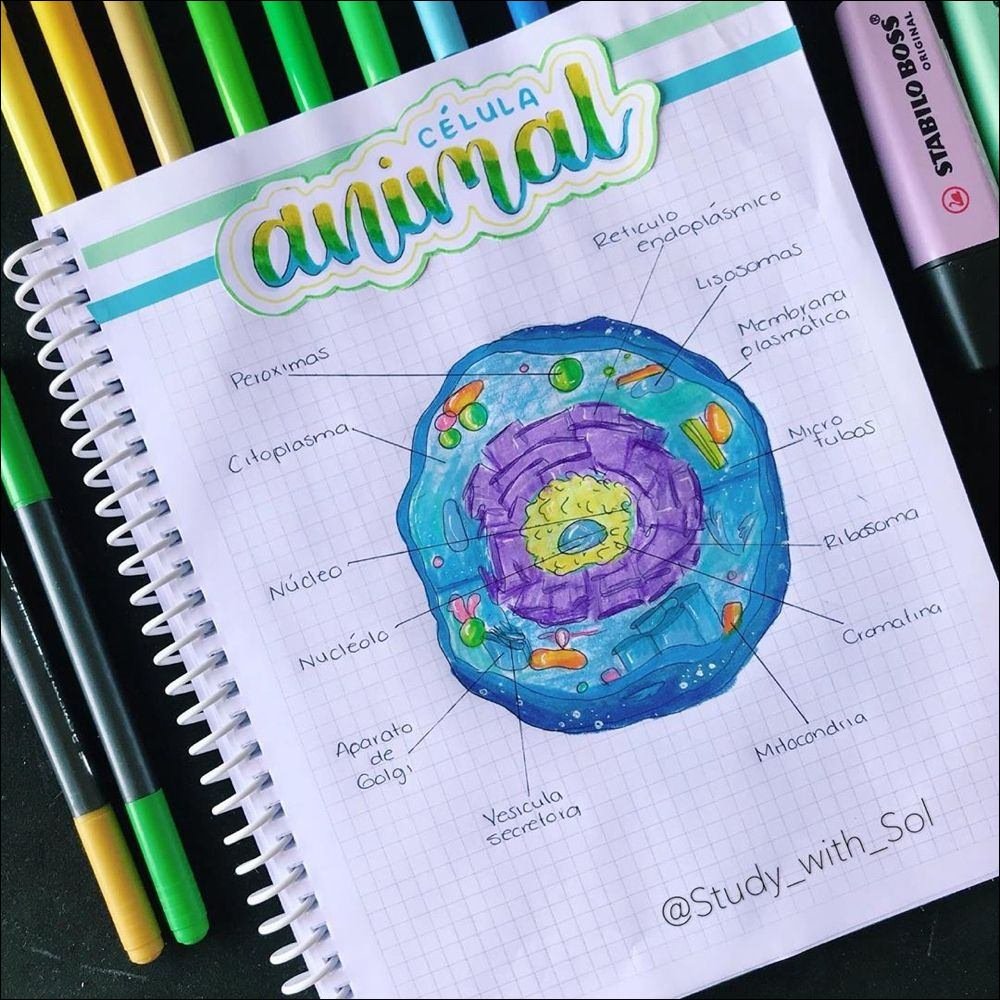 CÉLULA
animal
Reticulo
endoplásmico
Lisosomas
Membrana
plasmática
Micro
tubos
Ribosoma
Cromatina
Mitocondria
Peroximas
Citoplasma
Núcleo
Nucléolo
Aparato
de
Golgi
Vesicula
secretora
@Study_with_Sol
STABILO BOSS®
ORIGINAL